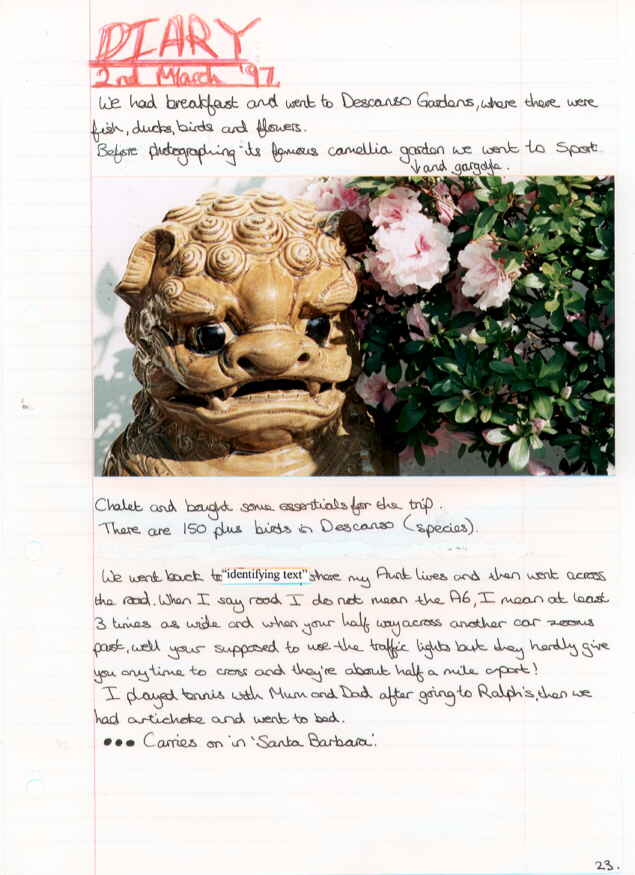 DIARY
2nd March '97.
We had breakfast and went to Descanso Gardens, where there were
fish, ducks, birds and flowers.
Before photographing its famous camellia garden we went to Sport
↓and gargoyle.
Chalet and bought some essentials for the trip.
There are 150 plus birds in Descanso (species).
We went back to "identifying text" where my Aunt lives and then went across
the road. When I say road I do not mean the A6, I mean at least
3 times as wide and when your half way across another car zooms
past, well your supposed to use the traffic lights but they hardly give
you any time to cross and they're about half a mile apart!
I played tennis with Mum and Dad after going to Ralph's, then we
had artichoke and went to bed.
••• Carries on in 'Santa Barbara'.
23.